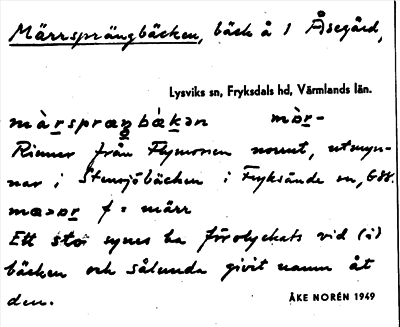 Märrsprängbäcken, bäck å 1 Åsegård,
Lysviks sn, Fryksdals hd, Värmlands län.
Rinner från Flymossen norrut, utmyn-
nar i Stensjöbäcken i Fryksände sn, G88.
f = märr
Ett sto synes ha förolyckats vid (i)
bäcken och sålunda givit namn åt
den.
ÅKE NORÉN 1949